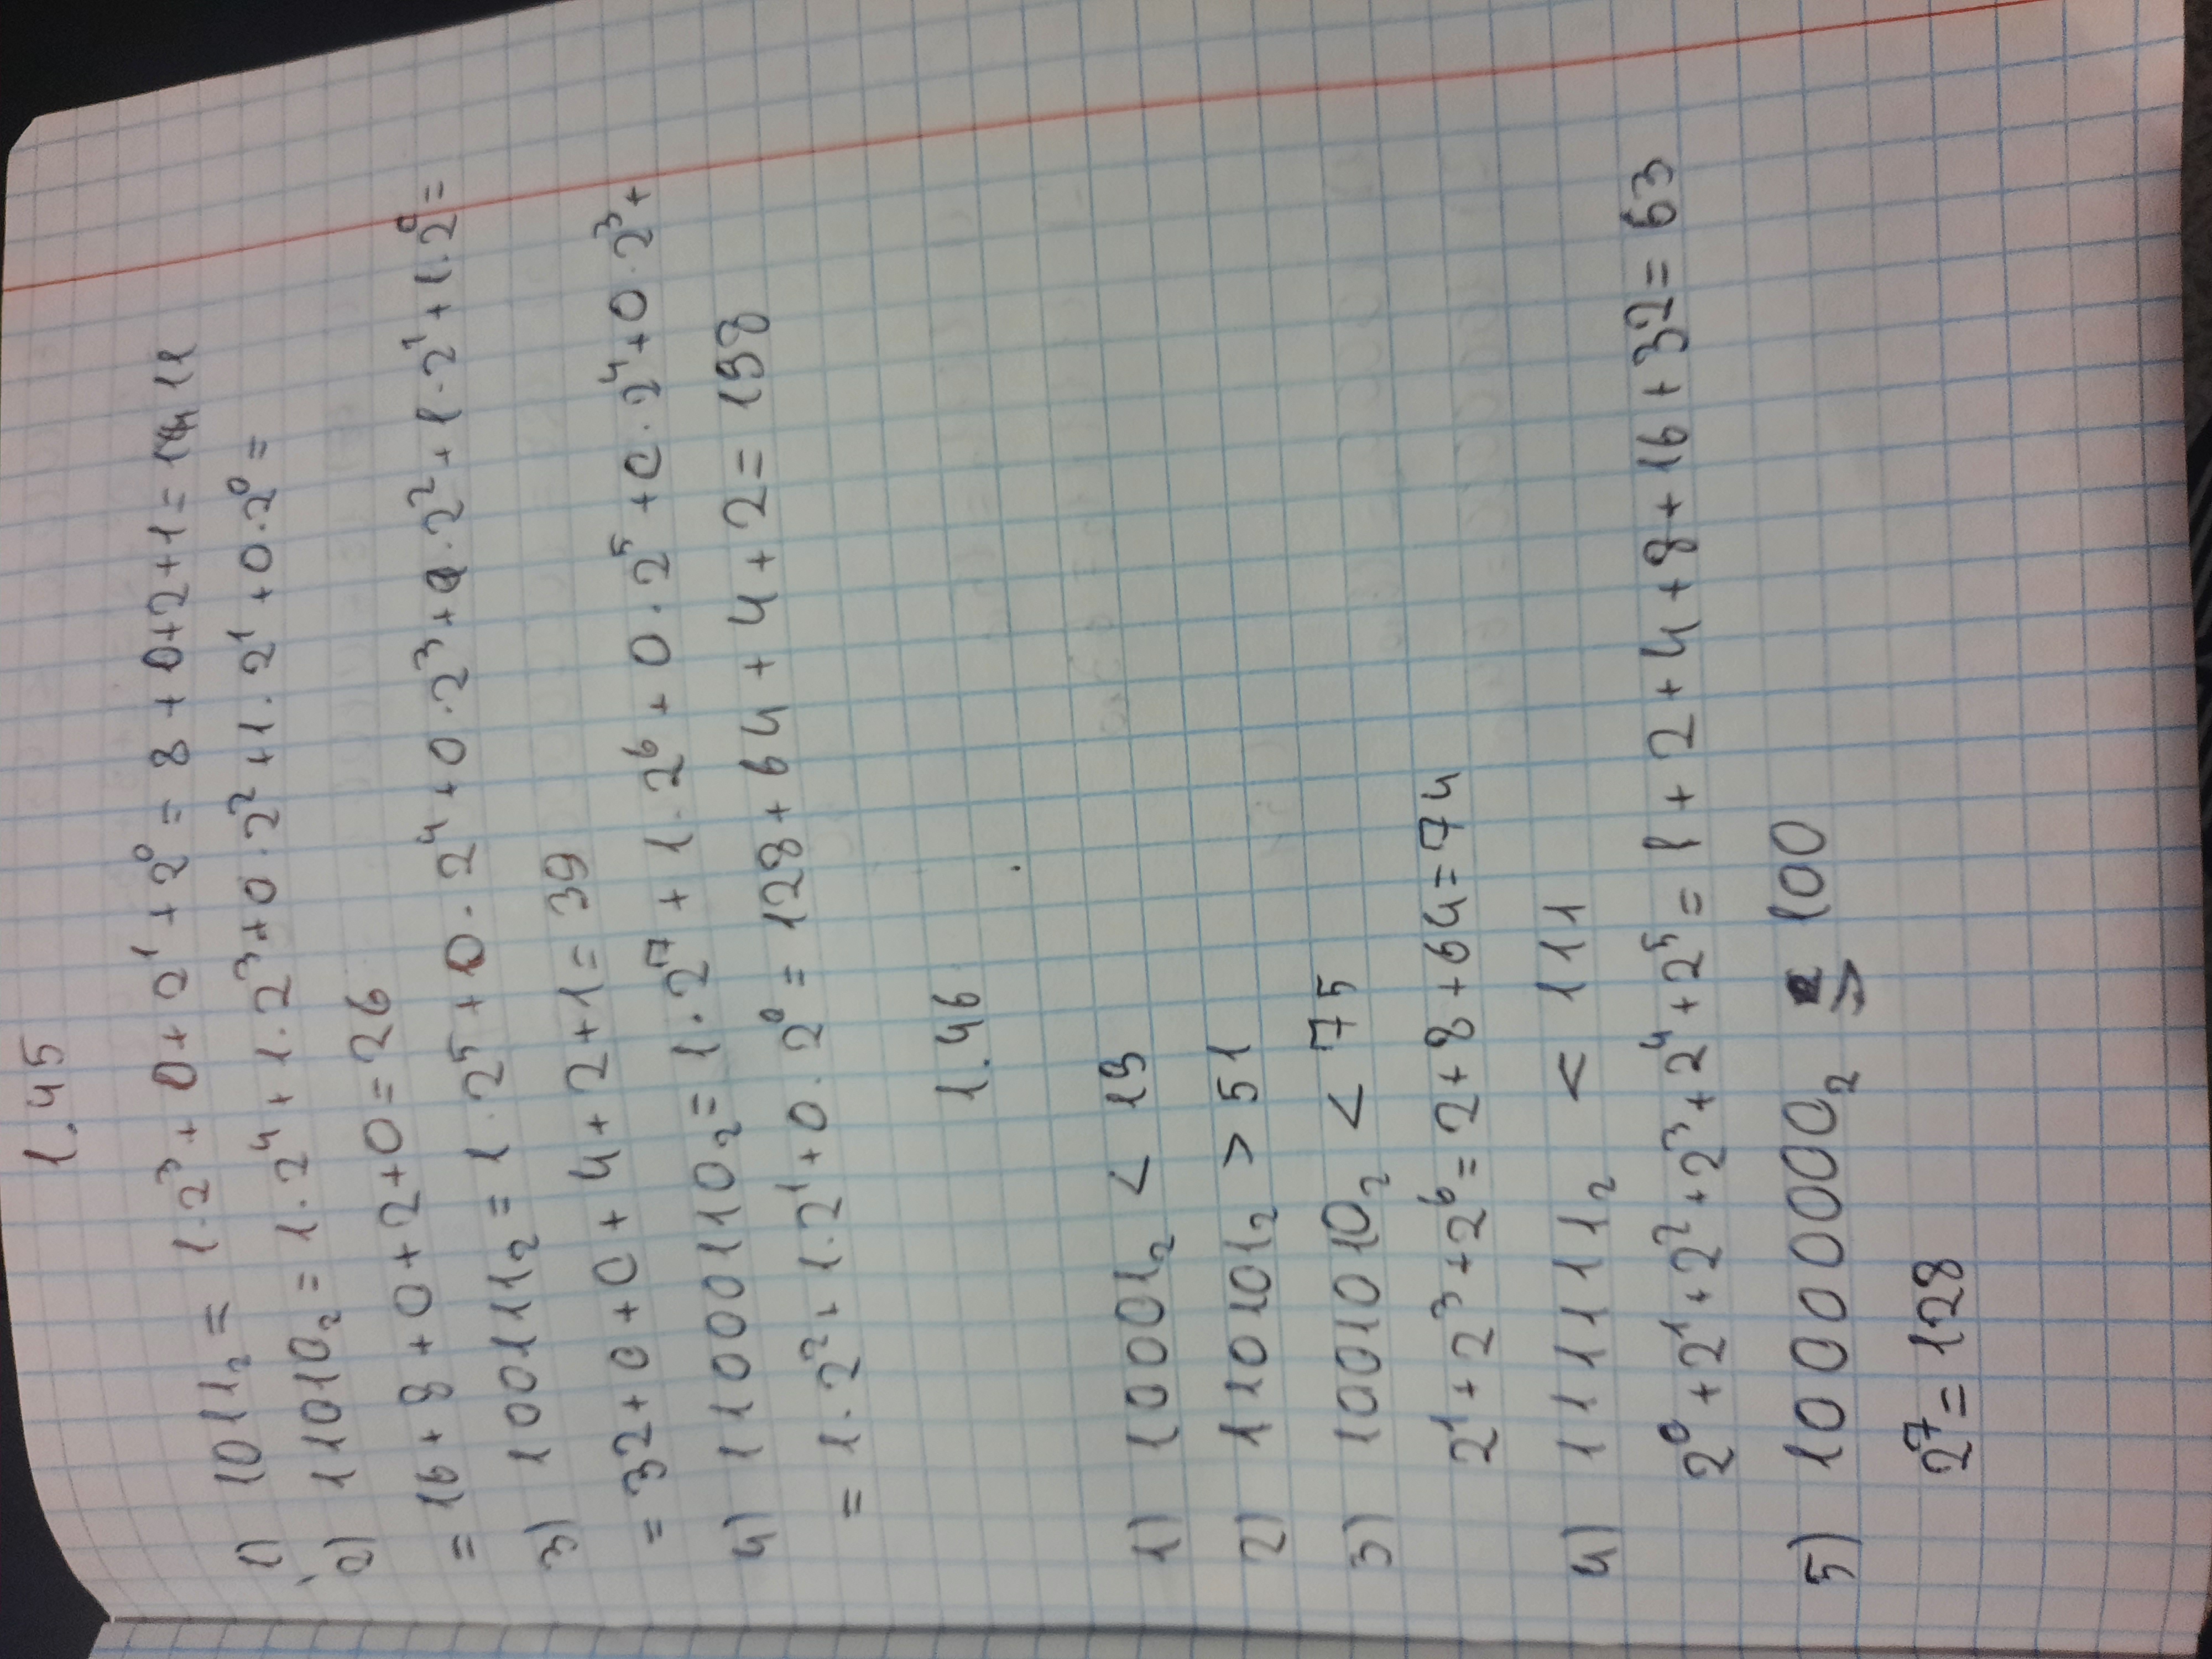 1.45
1) 1011₂ = 1·2³ + 0 + 2¹ + 2⁰ = 8 + 0+2+1= 11
2) 11010₂ = 1·2⁴ + 1·2³+0·2² +1·2¹ +0·2⁰ =
= 16 + 8 + 0 + 2 + 0 = 26
3) 100111₂ = 1·2⁵ + 0·2⁴ + 0·2³ + 1·2² + 1·2¹ + 1·2⁰ =
= 32 + 0 + 0 + 4 + 2 + 1 = 39
4) 11000110₂ = 1·2⁷ + 1·2⁶ + 0·2⁵ + 0·2⁴ + 0·2³ +
= 1·2² + 1·2¹ + 0·2⁰ = 128 + 64 + 4 + 2 = 198
1.46
1) 10001₂ < 19
2) 110101₂ > 51
3) 1001010₂ < 75
2¹ + 2³ + 2⁶ = 2 + 8 + 64 = 74
4) 111111₂ < 111
2⁰ + 2¹ + 2² + 2³ + 2⁴ + 2⁵ = 1 + 2 + 4 + 8 + 16 + 32 = 63
5) 10000000₂ > 100
2⁷ = 128